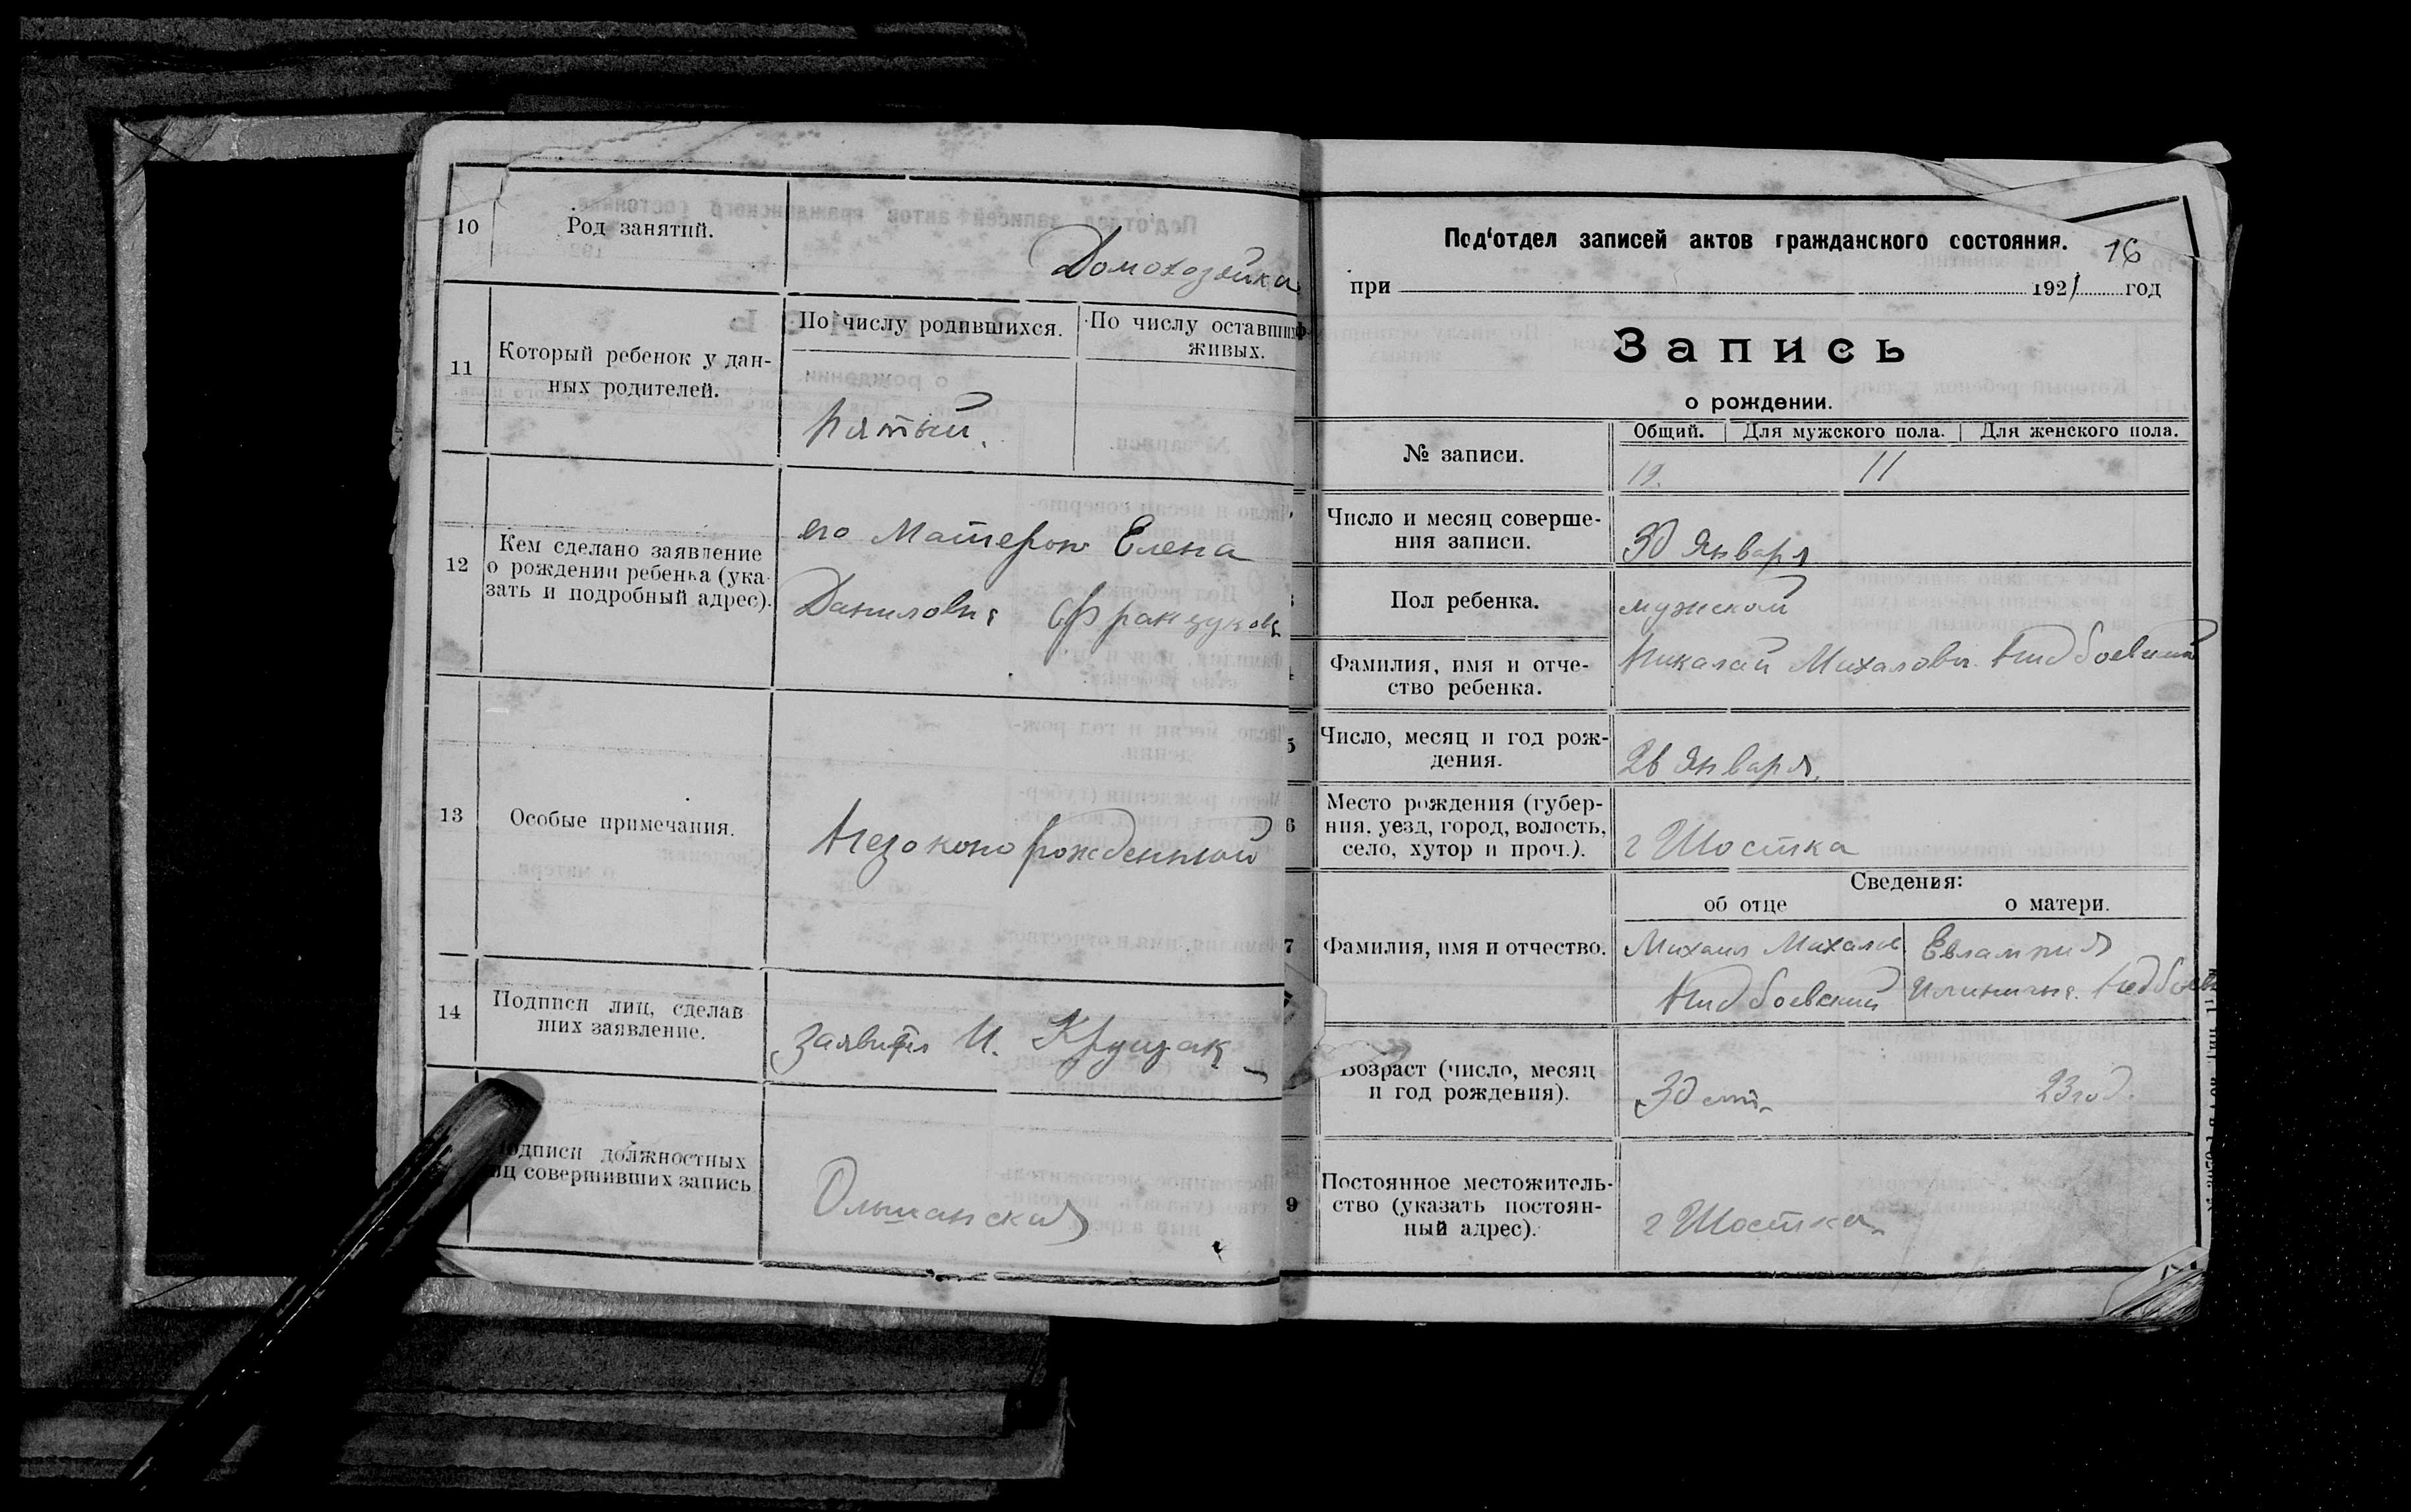 10
Род занятий.
Домохозяйка
11
Который ребенок у дан-
ных родителей.
По числу родившихся.
По числу оставших
живых.
Пятый.
12
Кем сделано заявление
о рождении ребенка (ука-
зать и подробный адрес).
его Матерью Елена
Даниловна Французова
13
Особые примечания.
Незаконо рожденный
14
Подписи лиц, сделав
ших заявление.
заявител И.
одписи должностных
иц совершивших запись
Ольшанская
Под‘отдел записей актов гражданского состояния.
16
при 1921 год
Запись
о рождении.
№ записи.
Общий. Для мужского пола. Для женского пола.
19. 11
Число и месяц соверше-
ния записи.
30 Января
Пол ребенка.
мужской
Фамилия, имя и отче-
ство ребенка.
Николай Михалови.
5
Число, месяц и год рож-
дения.
26 Января.
6
Место рождения (губер-
ния, уезд, город, волость,
село, хутор и проч.).
г Шостка
Сведения:
об отце
о матери.
7
Фамилия, имя и отчество.
Михаил Михалов
Евлампия
Возраст (число, месяц
и год рождения).
30 лет
23 год.
9
Постоянное местожитель-
ство (указать постоян-
ный адрес).
г Шостка